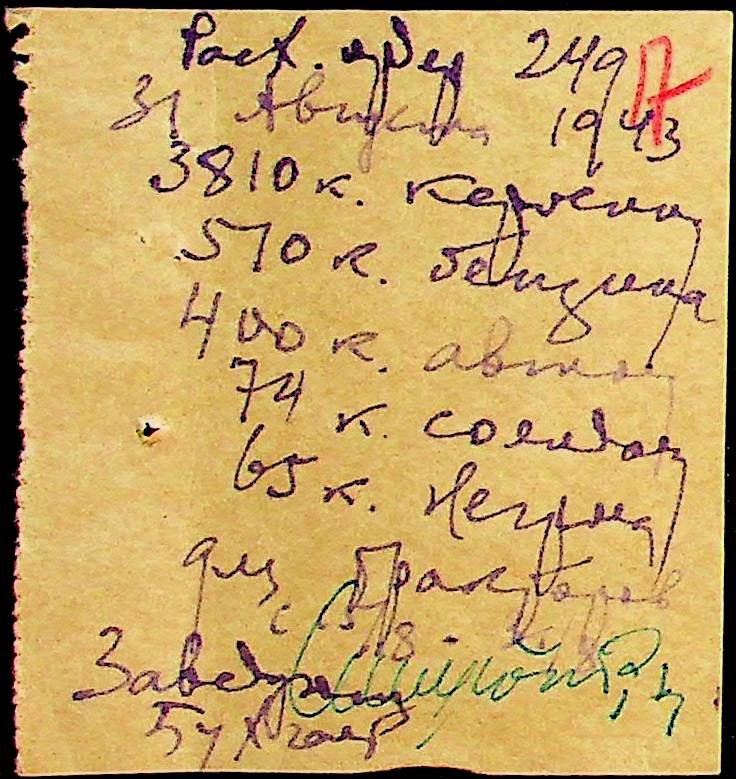 Расх. ордер 249
31 Августа 1943
3810 к. керосина
510 к. бензина
400 к. автол
74 к. солидол
65 к. Негрола
для тракторов
Заведующий
Бухгалтер